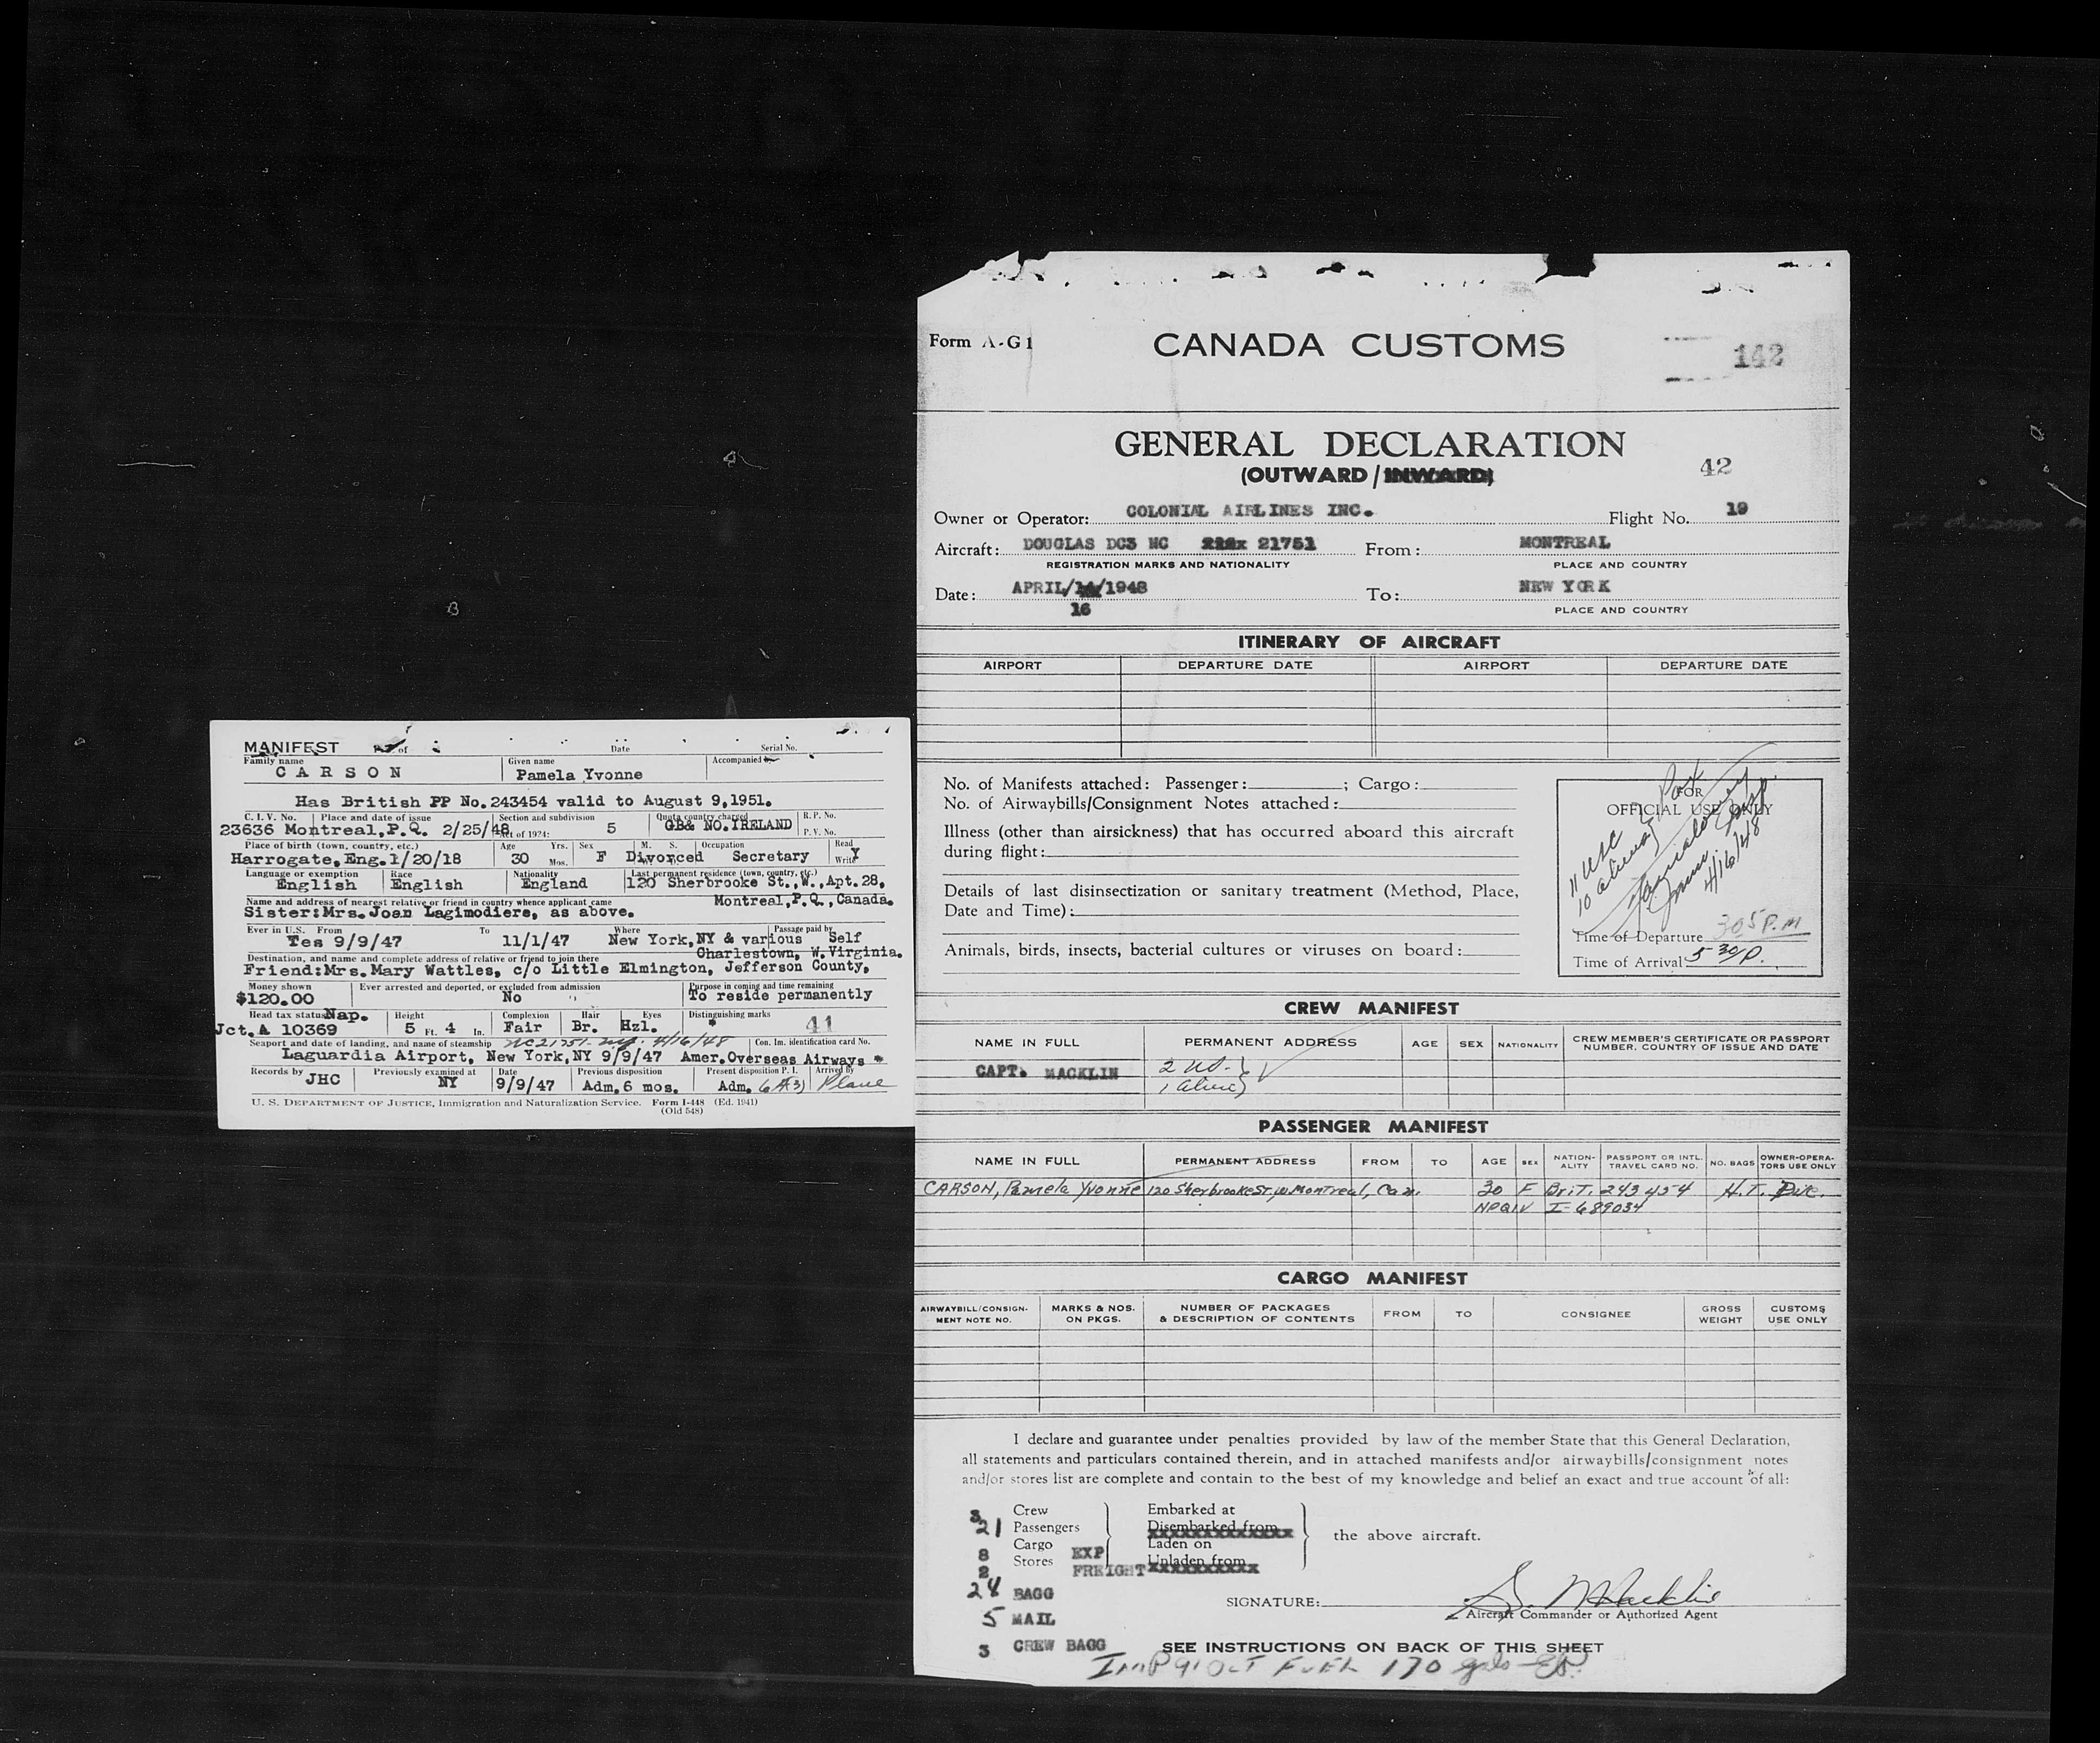 MANIFEST of Date Serial No.
Family name Given name Accompanied
CARSON Pamela Yvonne
Has British PP No.243454 valid to August 9,1951.
C. I. V. No. Place and date of issue Section and subdivision Quota country charged R. P. No.
23636 Montreal,P.Q. 2/25/48 Act of 1924: 5 GB& NO.IRELAND P. V. No.
Place of birth (town, country, etc.) Age Yrs. Sex M. S. Occupation Read
Harrogate,Eng.1/20/18 30 Mos. F Divorced Secretary Write Y
Language or exemption Race Nationality Last permanent residence (town, country, etc.)
English English England 120 Sherbrooke St.,W.,Apt.28,
Name and address of nearest relative or friend in country whence applicant came Montreal,P.Q.,Canada.
Sister:Mrs.Joan Lagimodiere, as above.
Ever in U.S. From To Where Passage paid by
Yes 9/9/47 11/1/47 New York,NY & various Self
Destination, and name and complete address of relative or friend to join there Charlestown, W.Virginia.
Friend:Mrs.Mary Wattles, c/o Little Elmington, Jefferson County,
Money shown Ever arrested and deported, or excluded from admission Purpose in coming and time remaining
$120.00 No To reside permanently
Head tax status Nap. Height Complexion Hair Eyes Distinguishing marks
Jct.A 10369 5 Ft. 4 In. Fair Br. Hzl. * 41
Seaport and date of landing, and name of steamship NC21751- 4/16/48 Con. Im. identification card No.
Laguardia Airport, New York,NY 9/9/47 Amer.Overseas Airways *
Records by Previously examined at Date Previous disposition Present disposition P. I. Arrived by
JHC NY 9/9/47 Adm.6 mos. Adm. Plane
U. S. DEPARTMENT OF JUSTICE, Immigration and Naturalization Service. Form I-448 (Ed. 1941)
(Old 548)
Form A-G1 CANADA CUSTOMS 142
GENERAL DECLARATION
(OUTWARD/INWARD) 42
Owner or Operator: COLONIAL AIRLINES INC. Flight No. 19
Aircraft: DOUGLAS DC3 NC 21751 From: MONTREAL
REGISTRATION MARKS AND NATIONALITY PLACE AND COUNTRY
Date: APRIL/14/1948 To: NEW YORK
16 PLACE AND COUNTRY
ITINERARY OF AIRCRAFT
AIRPORT DEPARTURE DATE AIRPORT DEPARTURE DATE
No. of Manifests attached: Passenger: ; Cargo:
No. of Airwaybills/Consignment Notes attached:
Illness (other than airsickness) that has occurred aboard this aircraft
during flight:
Details of last disinsectization or sanitary treatment (Method, Place,
Date and Time):
Animals, birds, insects, bacterial cultures or viruses on board:
FOR
OFFICIAL USE ONLY
11 USC
10 aliens
4/16/48
Time of Departure 305 P.M
Time of Arrival 5 30/P.
CREW MANIFEST
NAME IN FULL PERMANENT ADDRESS AGE SEX NATIONALITY CREW MEMBER'S CERTIFICATE OR PASSPORT
NUMBER, COUNTRY OF ISSUE AND DATE
CAPT. MACKLIN
PASSENGER MANIFEST
NAME IN FULL PERMANENT ADDRESS FROM TO AGE SEX NATION- ALITY PASSPORT OR INTL. TRAVEL CARD NO. NO. BAGS OWNER-OPERA- TORS USE ONLY
CARSON, Pamela Yvonne 120 Sherbrooke St, W Montreal, Can. 30 F Brit. 243454 H.T.
NPQIV I-689034
CARGO MANIFEST
AIRWAYBILL/CONSIGN- MENT NOTE NO. MARKS & NOS. ON PKGS. NUMBER OF PACKAGES & DESCRIPTION OF CONTENTS FROM TO CONSIGNEE GROSS WEIGHT CUSTOMS USE ONLY
I declare and guarantee under penalties provided by law of the member State that this General Declaration,
all statements and particulars contained therein, and in attached manifests and/or airwaybills/consignment notes
and/or stores list are complete and contain to the best of my knowledge and belief an exact and true account of all:
3 Crew Embarked at
21 Passengers Disembarked from the above aircraft.
8 Cargo EXP Laden on
2 Stores FREIGHT Unladen from
24 BAGG
SIGNATURE: S. Macklin
Aircraft Commander or Authorized Agent
5 MAIL
3 CREW BAGG SEE INSTRUCTIONS ON BACK OF THIS SHEET
IMP 91 OCT FUEL 170 gals